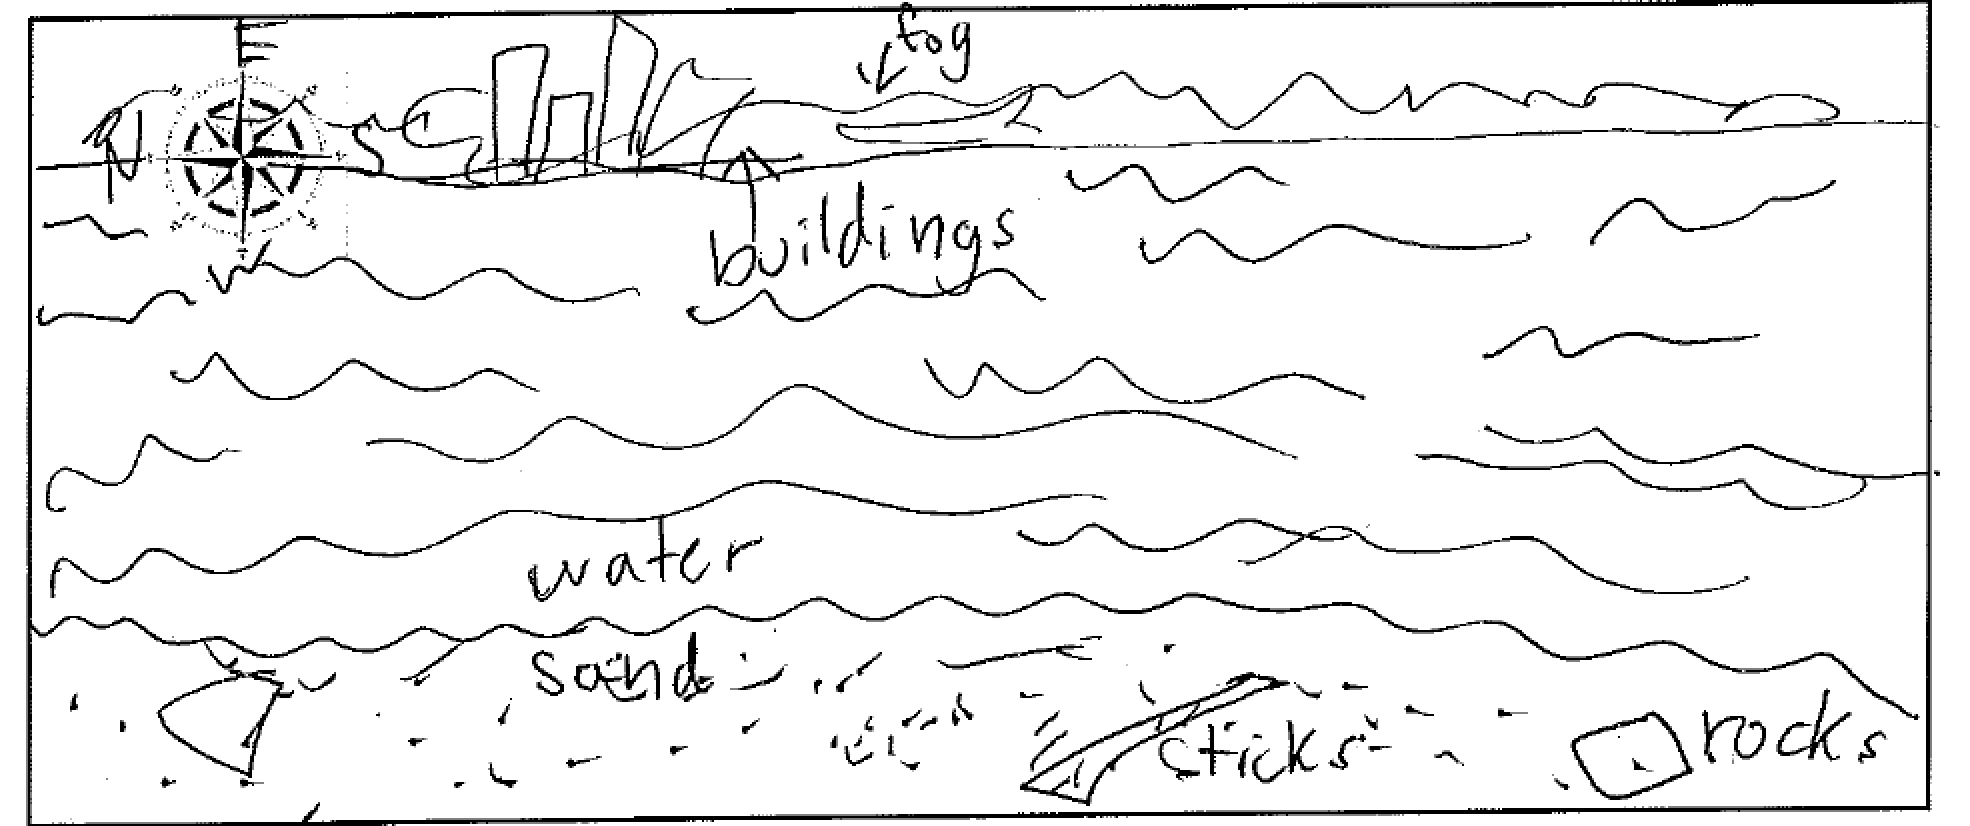 fog
E
N
S
W
buildings
water
sand
sticks
rocks